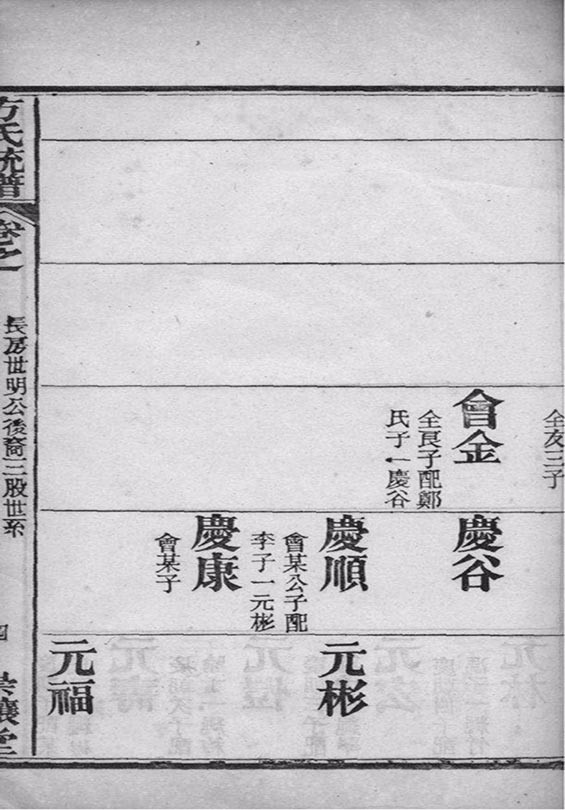 全友三子
會金
全良子配鄭
氏子一慶谷
慶谷
慶順
會某公子配
李子一元彬
慶康
會某子
元彬
元福
方氏統譜
卷之一
長房世明公後裔三股世系
四